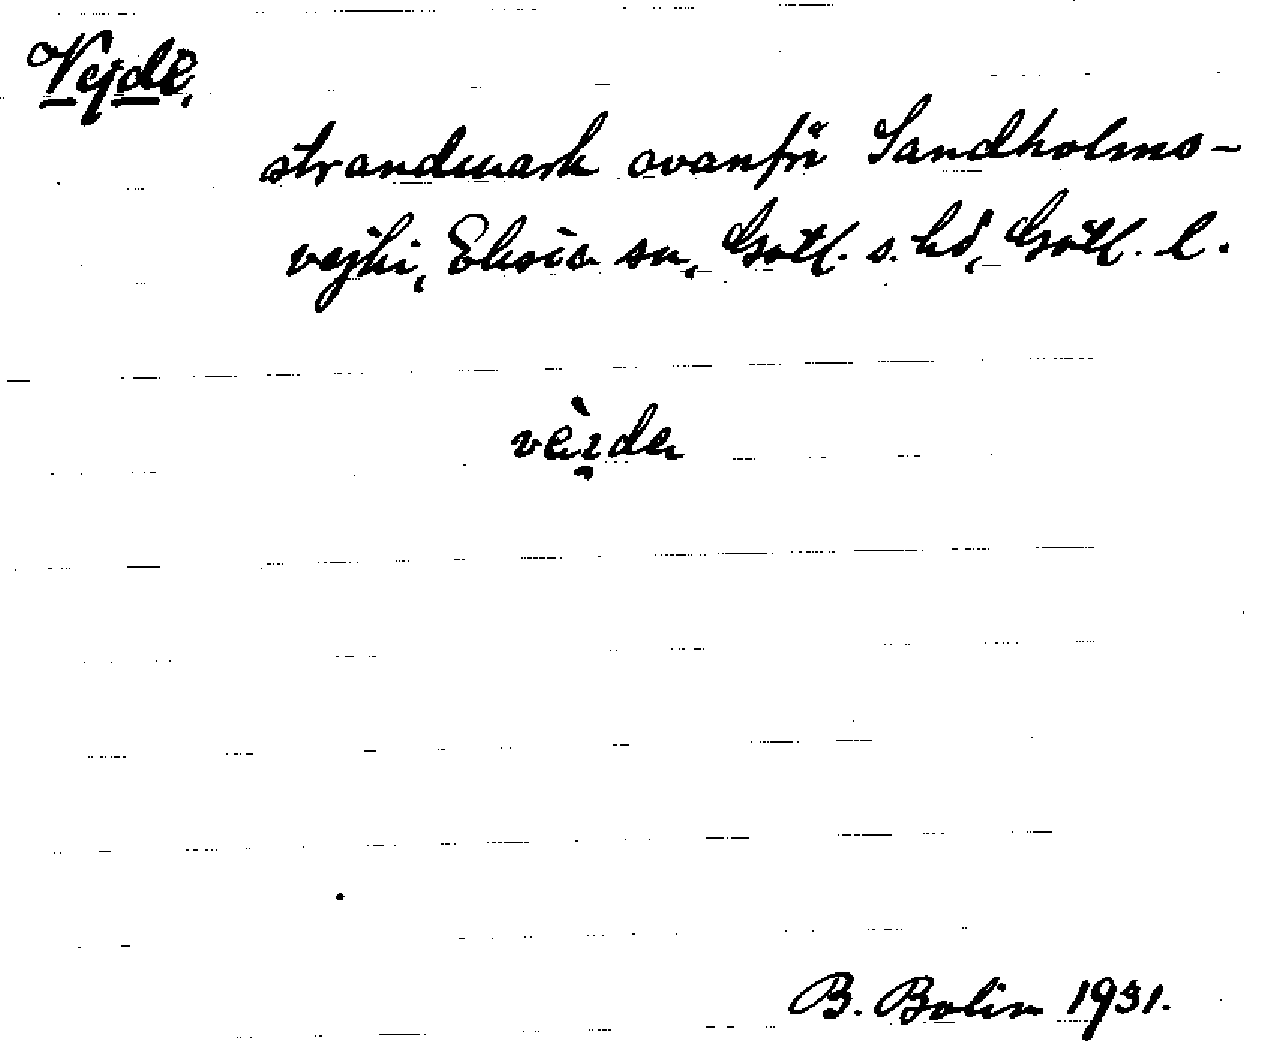 Vejde,
strandmark ovanför Sandholms-
vejki, Eksta sn, Gotl. s. hd, Gotl. l.
vèi̯da
B. Bolin 1931.